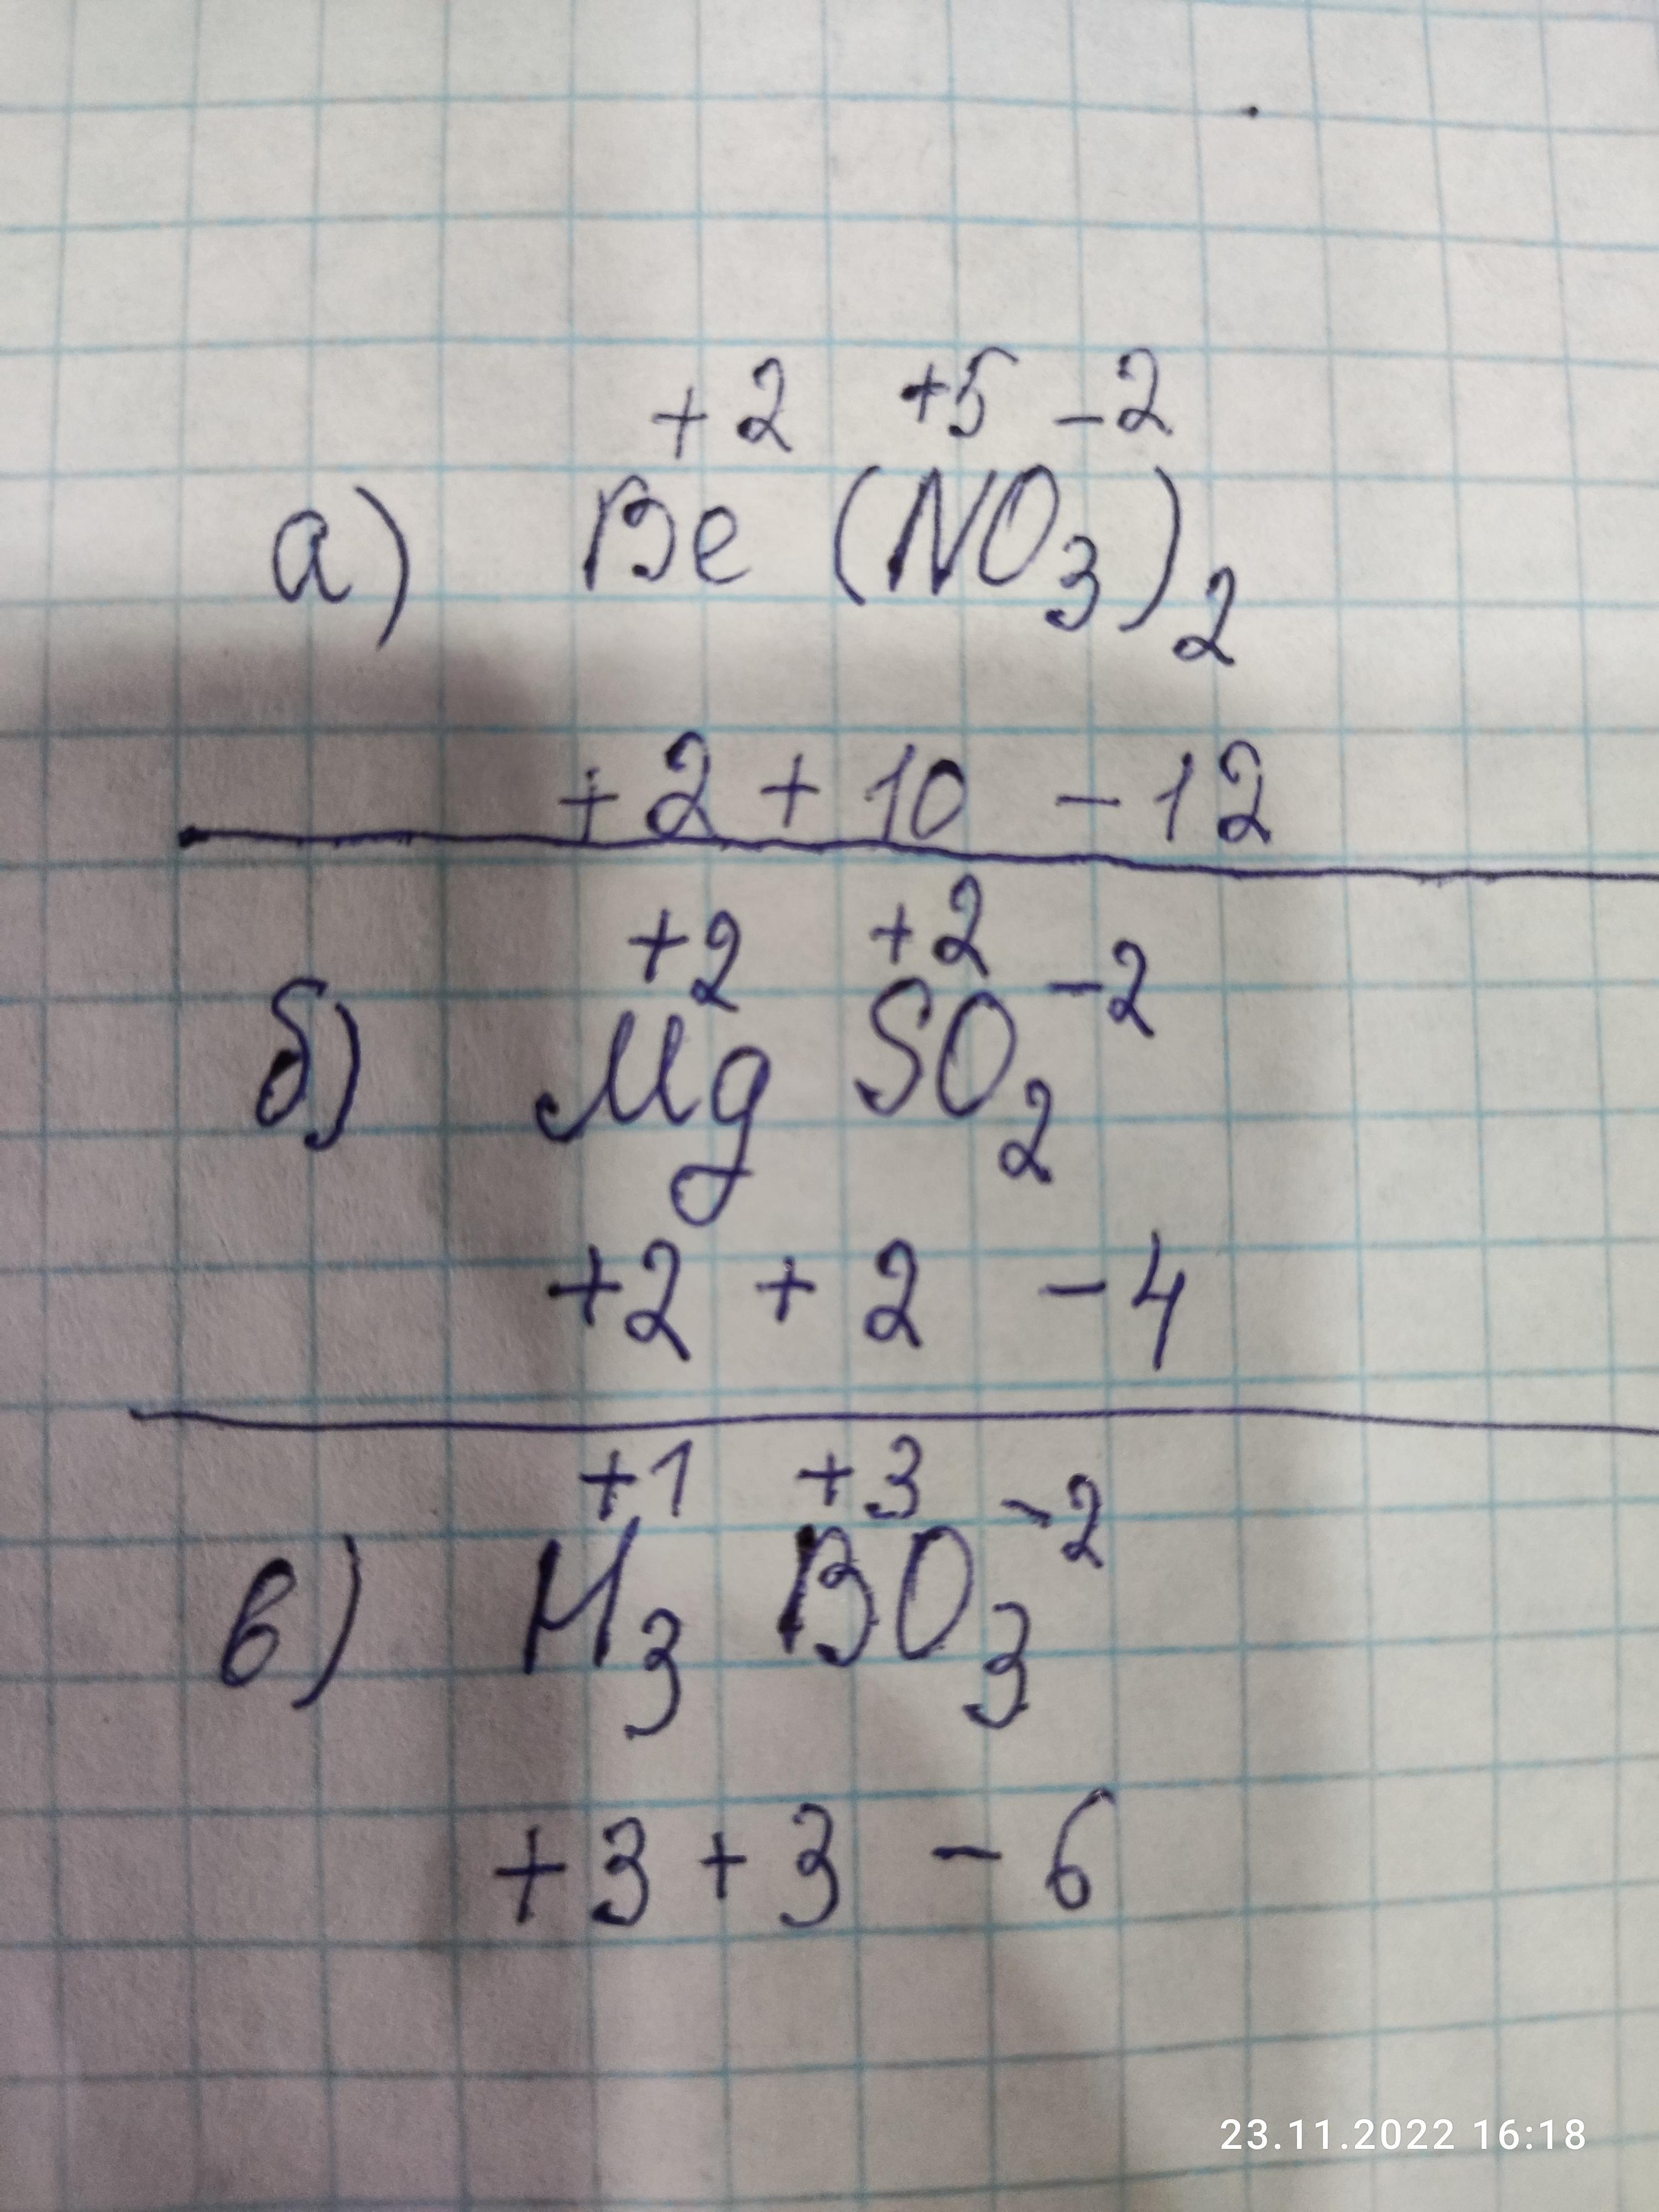 +2 +5 -2
а) Be (NO3)2
+2 + 10 - 12
+2 +2 -2
б) Mg SO2
+2 + 2 - 4
+1 +3 -2
в) H3 BO3
+3 + 3 - 6
23.11.2022 16:18